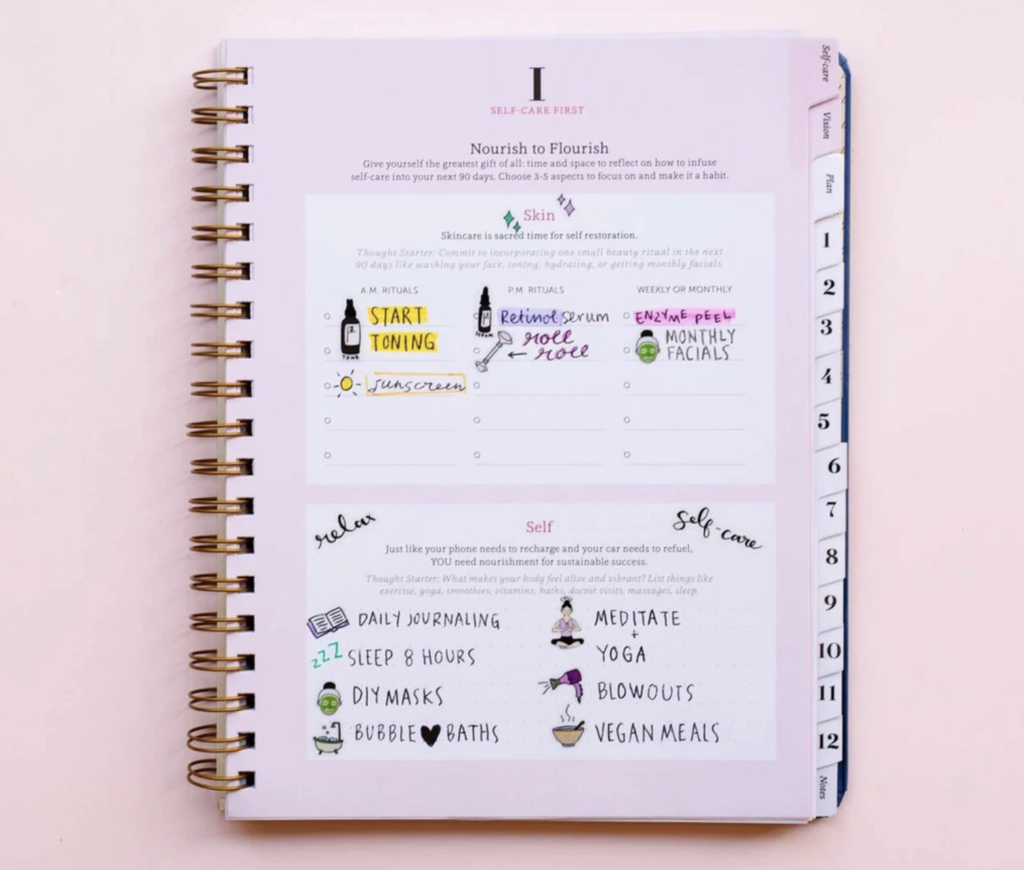 I
SELF-CARE FIRST
Nourish to Flourish
Give yourself the greatest gift of all: time and space to reflect on how to infuse
self-care into your next 90 days. Choose 3-5 aspects to focus on and make it a habit.
Skin
Skincare is sacred time for self restoration.
Thought Starter: Commit to incorporating one small beauty ritual in the next
90 days like washing your face, toning, hydrating, or getting monthly facials.
A.M. RITUALS
START
TONING
sunscreen
P.M. RITUALS
Retinol serum
roll
← roll
WEEKLY OR MONTHLY
ENZYME PEEL
MONTHLY
FACIALS
relax
Self
self-care
Just like your phone needs to recharge and your car needs to refuel,
YOU need nourishment for sustainable success.
Thought Starter: What makes your body feel alive and vibrant? List things like
exercise, yoga, smoothies, vitamins, baths, doctor visits, massages, sleep
DAILY JOURNALING
zzz SLEEP 8 HOURS
DIY MASKS
BUBBLE ♥ BATHS
MEDITATE
+
YOGA
BLOWOUTS
VEGAN MEALS
Self-care
Vision
Plan
1
2
3
4
5
6
7
8
9
10
11
12
Notes